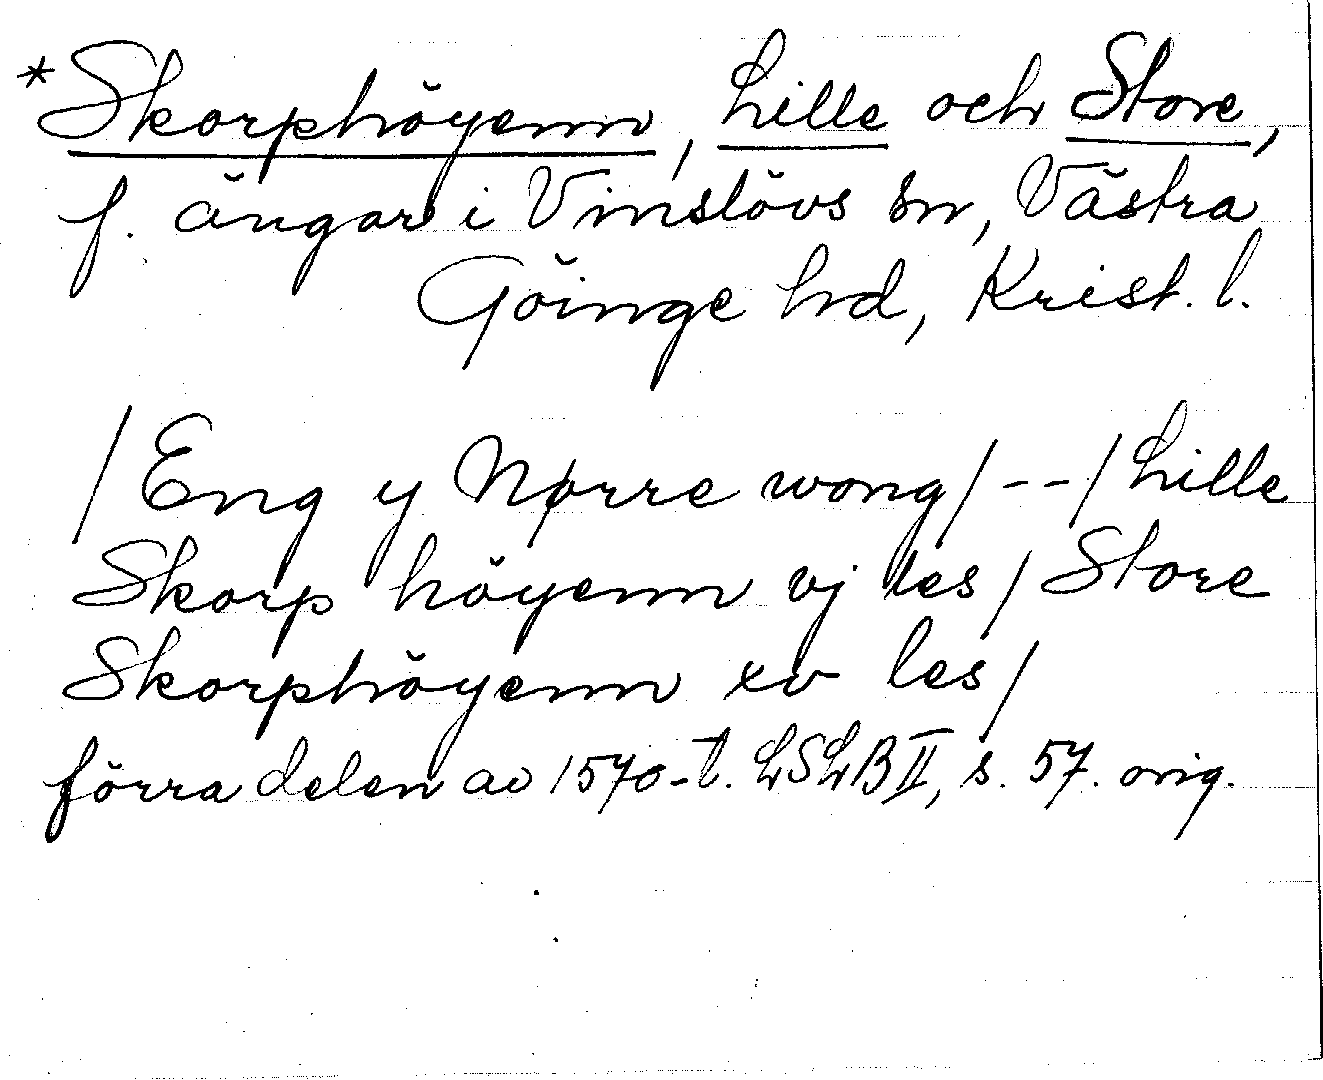 *Skorphöyenn, Lille och Store,
f. ängar i Vinslövs sn, Västra
Göinge hd, Krist. l.
/Eng y Nørre wong/--/Lille
Skorp höyenn vj les/Store
Skorphöyenn xv les/
förra delen av 1570-t. LSLB II, s. 57. orig.